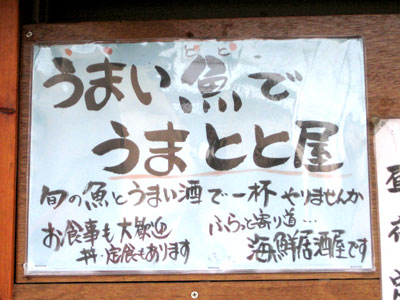 うまい魚で
とと
うまとと屋
旬の魚とうまい酒で一杯やりませんか
お食事も大歓迎
丼・定食もあります
ふらっと寄り道…
海鮮居酒屋です